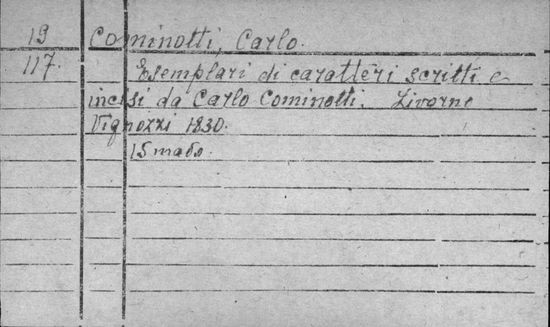 19 Cominotti, Carlo.
117. Esemplari di caratteri scritti e
incisi da Carlo Cominotti. Livorno
Vignozzi 1830.